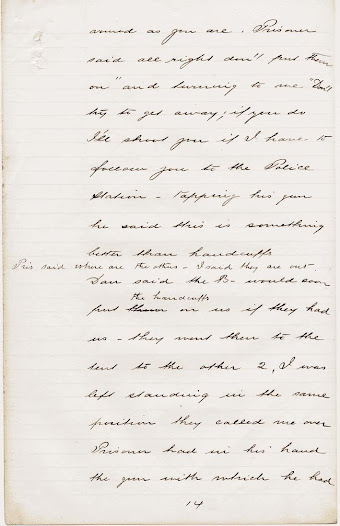 armed as you are. Prisoner
said all right don't put them
on" and turning to me "Don't
try to get away; if you do
I'll shoot you if I have to
follow you to the Police
Station - tapping his gun
he said this is something
better than handcuffs
Pris said where are the others - I said they are out.
Dan said the B- would soon
the handcuffs
put them on us if they had
us - they went then to the
tent to the other 2, I was
left standing in the same
position they called me over
Prisoner had in his hand
the gun with which he had
14